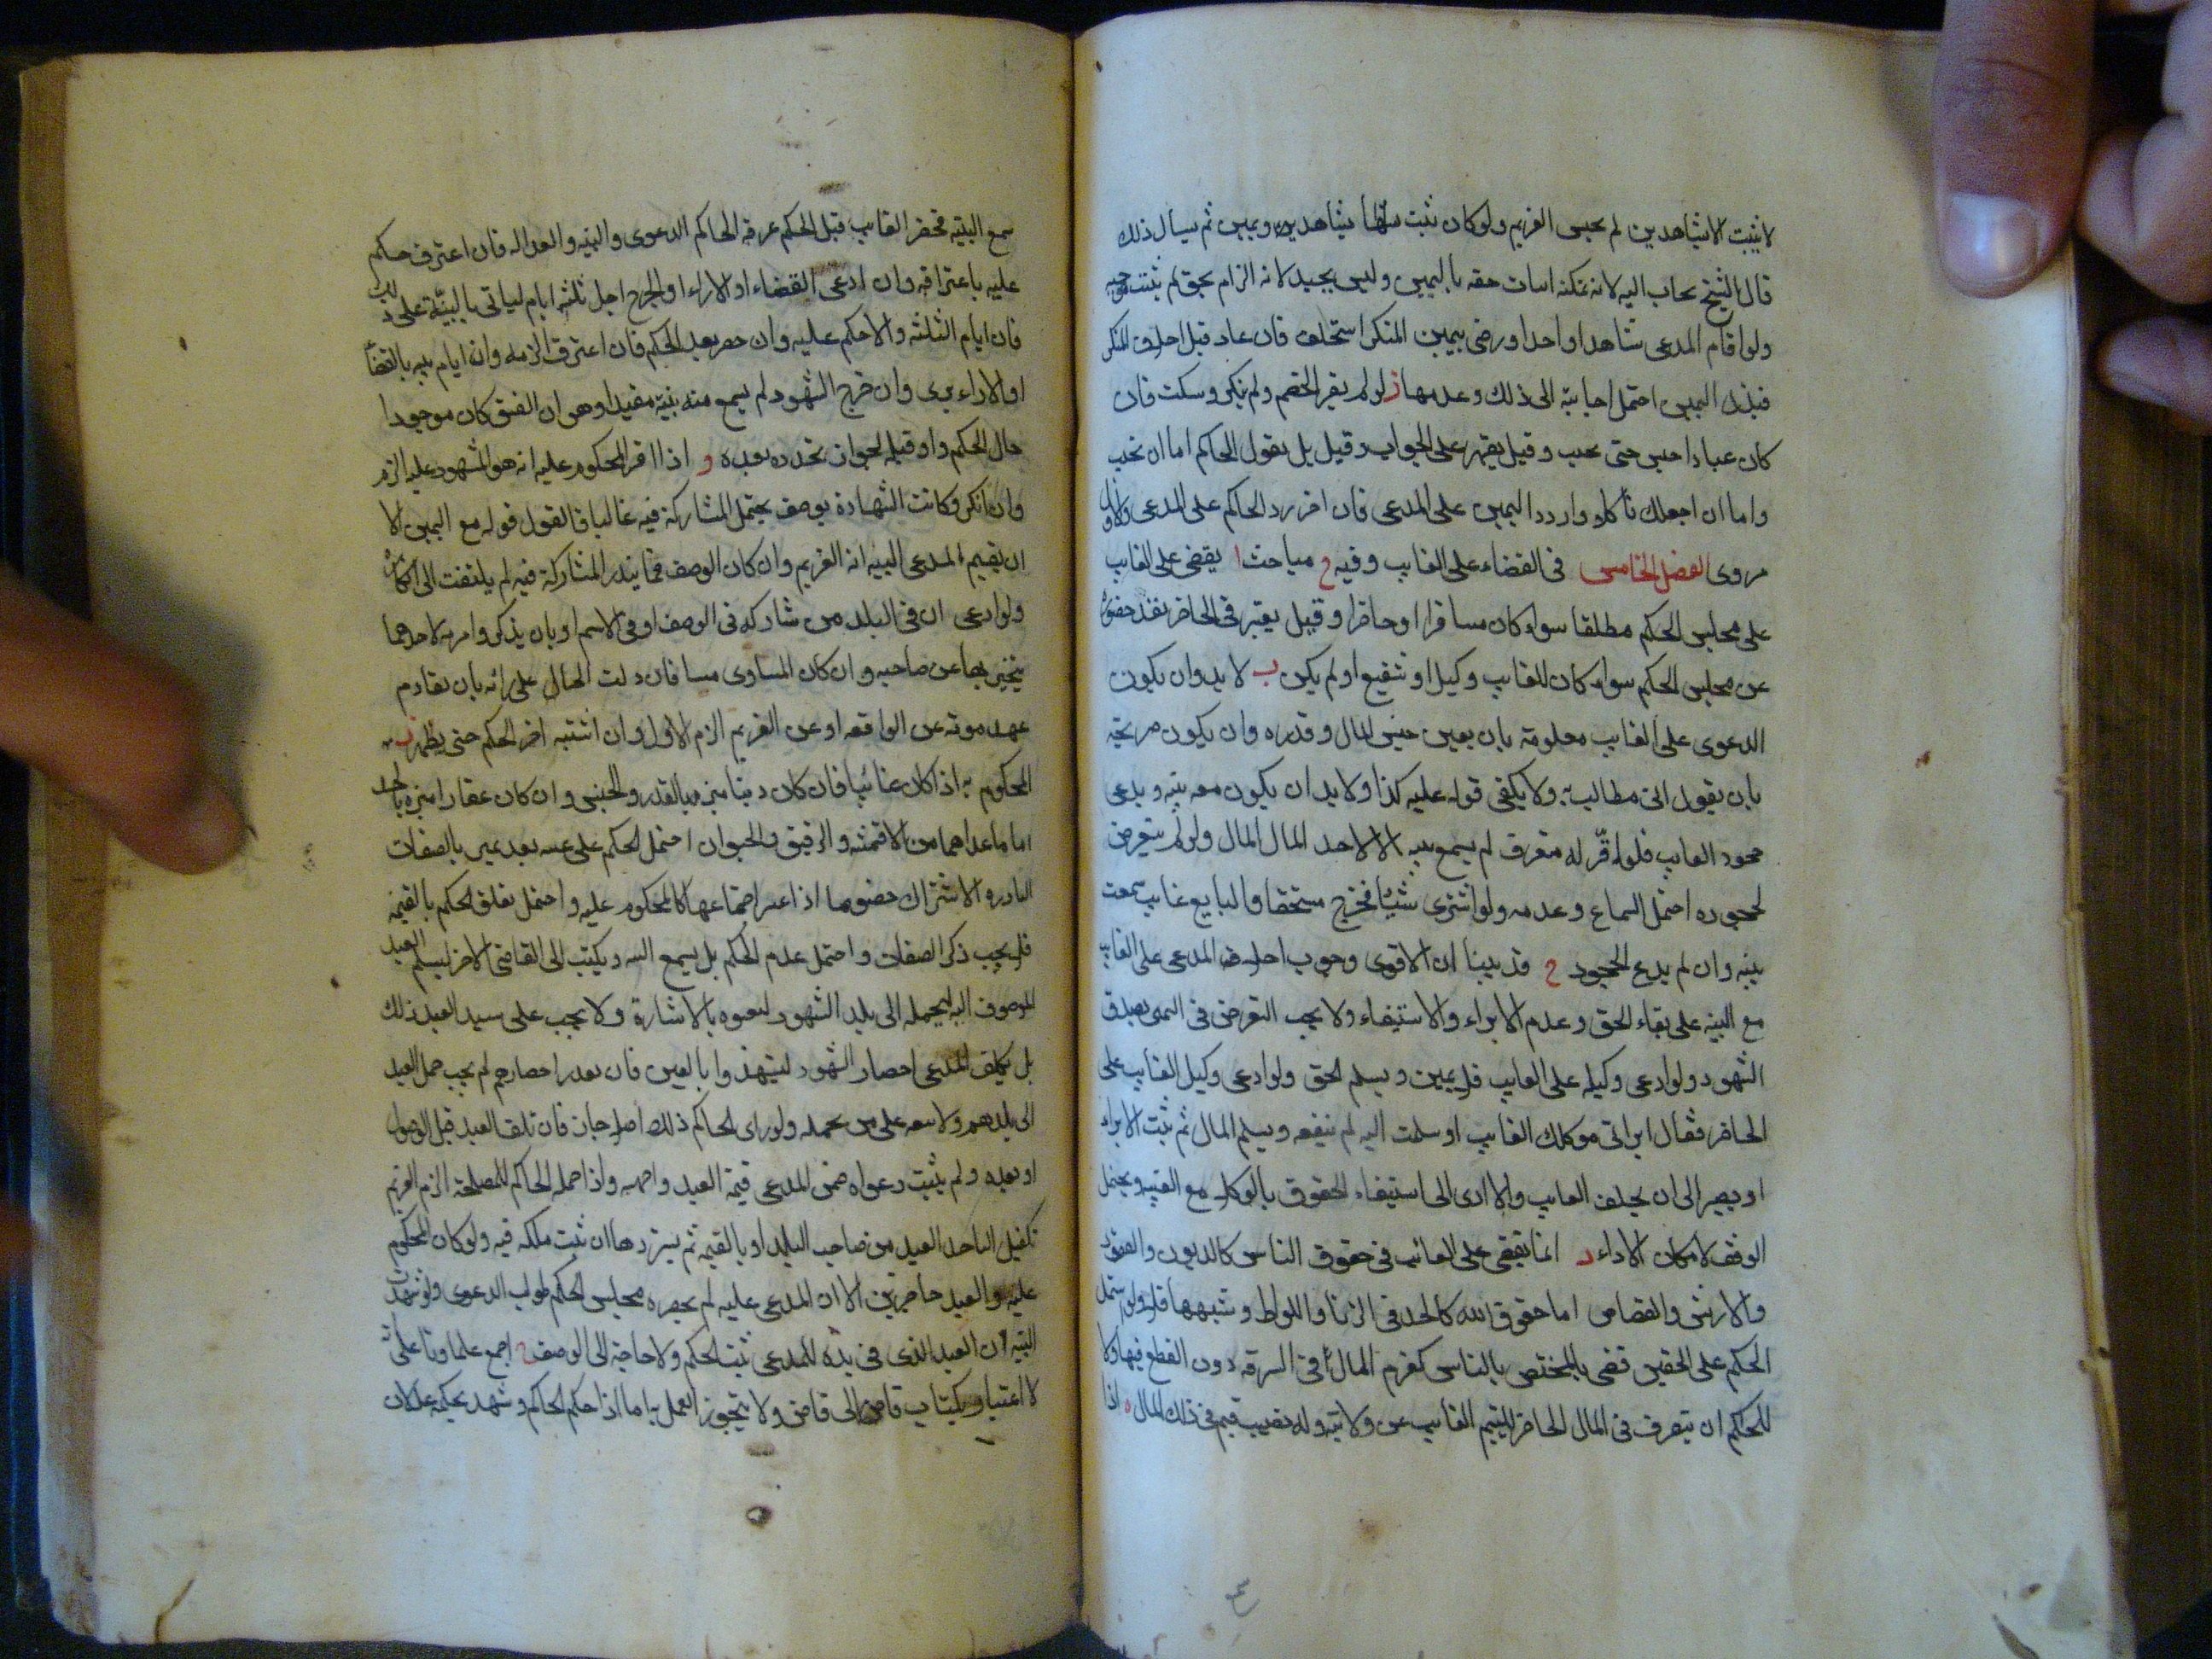 لا يثبت الا بشاهدين لم يحبس الغريم ولو كان يثبت بشاهد ويمين ثم سال ذلك
قال الشيخ يجاب اليه لانه يمكنه اثبات حقه باليمين وليس بجيد لانه الزام بحق لم يثبت موجبه
ولو اقام المدعى شاهدا واحدا ورضى بيمين المنكر استحلف فان عاد قبل احلاف المنكر
فبذل اليمين احتمل اجابته الى ذلك وعدمها ز لو لم يقر الخصم ولم ينكر وسكت فان
كان عنادا حبس حتى يجيب وقيل يقهر على الجواب وقيل بل يقول الحاكم اما ان تجيب
واما ان اجعلك ناكلا واردد اليمين على المدعى فان اصر رد الحاكم على المدعى والاول
مروى الفصل الخامس فى القضاء على الغايب وفيه مباحث ا يقضى على الغايب
على مجلس الحكم مطلقا سواء كان مسافرا او حاضرا وقيل يعتبر فى الحاضر تعذر حضوره
عن مجلس الحكم سواء كان للغايب وكيل او شفيع او لم يكن ب لا بد وان يكون
الدعوى على الغايب معلومة بان يعين جنس المال وقدره وان يكون صريحة
بان يقول انى مطالب به ولا يكفى قوله عليه كذا ولا بد ان يكون معه بينه ويدعى
جحود الغايب فلو اقر انه معترف لم يسمع بينه الا لاخذ المال ولو لم يتعرض
لجحوده احتمل السماع وعدمه ولو اشترى شيئا فخرج مستحقا والبايع غايب سمعت
بينه وان لم يدع الجحود ج قد بينا ان الاقوى وجوب احلاف المدعى على الغايب
مع البينه على بقاء الحق وعدم الابراء والاستيفاء ولا يجب التعرض فى اليمين لصدق
الشهود ولو ادعى وكيله على الغايب فلا يمين ويسلم الحق ولو ادعى وكيل الغايب على
الحاضر فقال ابرانى موكلك الغايب او سلمت اليه لم ينفعه ويسلم المال ثم يثبت الابراء
او يصير الى ان يحلف الغايب والا ادى الى استيفاء الحقوق بالوكلاء مع الغيبه ويحتمل
الوقف لامكان الاداء د انما يقضى على الغائب فى حقوق الناس كالديون والعقود
والارش والقصاص اما حقوق الله كالحد فى الزنا واللواط وشبهها فلا ولو اشتمل
الحكم على الحقين قضى بالمختص بالناس كغرم المال فى السرقه دون القطع فيها ولا
للحاكم ان يتصرف فى المال الحاضر لليتيم الغايب عن ولايته وله نصيب قيم فى ذلك المال ه اذا
سمع البينه فحضر الغايب قبل الحكم عرفه الحاكم الدعوى والبينه والعداله فان اعترف حكم
عليه باعترافه وان ادعى القضاء او الابراء او الجرح اجل ثلثه ايام لياتى بالبينة على ذلك
فان ايام الثلثه والا حكم عليه وان حضر بعد الحكم فان اعترف الزمه وان اقام بينه بالقضا
او الابراء برى وان جرح الشهود لم يسمع منه بينة مقيدا وهى ان الفسق كان موجودا
حال الحكم او قبله لجواز تجدده بعده و اذا اقر المحكوم عليه انه هو المشهود عليه الزم
وان انكر وكانت الشهادة بوصف يحتمل المشاركة فيه غالبا فالقول قوله مع اليمين الا
ان يقيم المدعى البينه انه الغريم وان كان الوصف مما يندر المشاركة فيه لم يلتفت الى انكاره
ولو ادعى ان فى البلد من شاركه فى الوصف او فى الاسم او بان يذكر وامر به لاحدهما
يتميز بها عن صاحبه وان كان المساوى ميتا فان دلت الحال على برائه بان تقادم
عهد موته عن الواقعه او عن الغريم الزم الاول وان اشتبه اخر الحكم حتى يظهر ز
المحكوم به اذا كان غائبا فان كان دينا ميزه بالقدر والجنس وان كان عقارا ميزه بالحد
اما ما عداهما من الاقمشه والرقيق والحيوان احتمل الحكم على عينه بعد تميز بالصفات
النادره الاشتراك خصوصا اذا اعتبر اجتماعها كالمحكوم عليه واحتمل تعلق الحكم بالقيمه
فلا يجب ذكر الصفات واحتمل عدم الحكم بل يسمع البينه ويكتب الى القاضى الاخر ليسلم العبد
الموصوف اليه ليحمله الى بلد الشهود ليعينوه بالاشارة ولا يجب على سيد العبد ذلك
بل يكلف المدعى احضار الشهود ليشهدوا بالعين فان تعذر احضارهم لم يجب حمل العبد
الى بلدهم ولا بيعه على من يحمله ولو راى الحاكم ذلك صلاحا جاز فان تلف العبد قبل الوصول
او بعده ولم يثبت دعواه ضمن المدعى قيمة العبد واجرته واذا حمله الحاكم للمصلحة الزم الغريم
تكفيل الماخذ العبد من صاحب البلد او بالقيمه ثم يستردها ان ثبت ملكه فيه ولو كان المحكوم
عليه والعبد حاضرين الا ان المدعى عليه لم يحضره مجلس الحكم طولب الدعوى ولو شهدت
البينه ان العبد الذى فى يده للمدعى ثبت الحكم ولا حاجة الى الوصف ح اجمع علماونا على انه
لا اعتبار بكتاب قاض الى قاض ولا يجوز العمل به اما اذا حكم الحاكم وشهد بحكمه عدلان